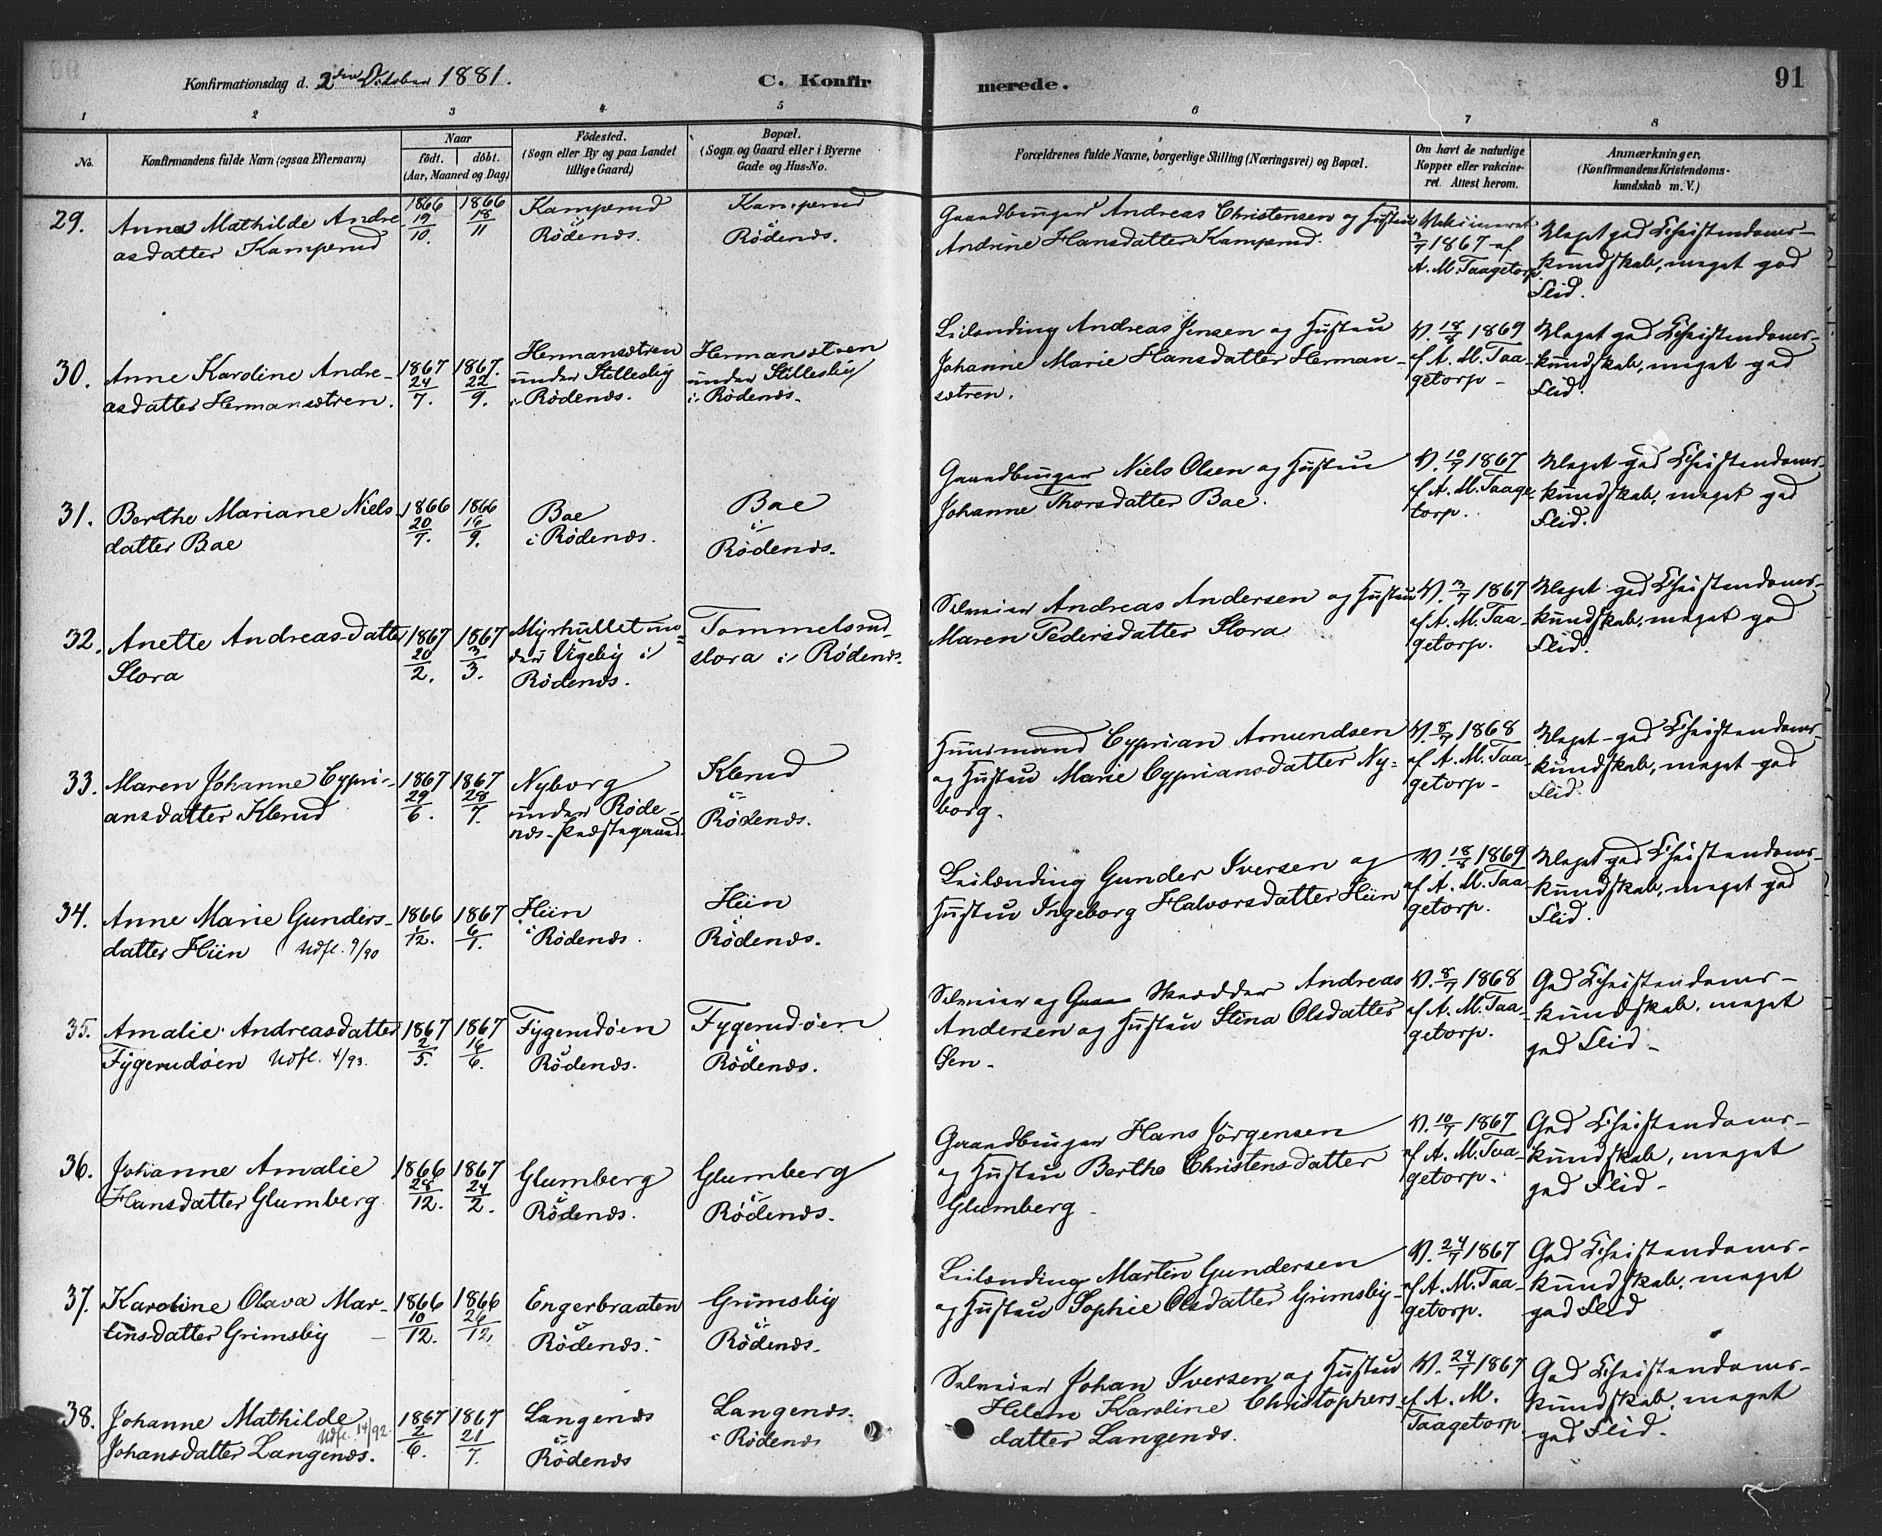 Konfirmationsdag d. 2den October 1881.
C. Konfir
merede.
91
1
2
3
4
5
6
7
8
No.
Konfirmandens fulde Navn (ogsaa Efternavn)
Naar
født. døbt.
(Aar, Maaned og Dag)
Födested.
(Sogn eller By og paa Landet
tillige Gaard)
Bopæl.
(Sogn og Gaard eller i Byerne
Gade og Hus-No.
Forældrenes fulde Navne, borgerlige Stilling (Næringsvei) og Bopæl.
Om havt de naturlige
Kopper eller vakcine-
ret. Attest herom.
Anmærkninger.
(Konfirmandens Kristendoms-
kundskab m. V.)
29.
Anna Mathilde Andre
asdatter Kamperud
1866
19/10.
1866
18/11
Kamperud
i
Rödenæs.
Kamperud
i
Rödenæs.
Gaardbruger Andreas Christensen og Hustru
Andrine Hansdatter Kamperud.
Vakcineret
3/7 1867 af
A. M. Taagetorp.
Meget god Christendoms-
kundskab, meget god
Flid.
30.
Anne Karoline Andre-
asdatter Hermansætren.
1867
24/7.
1867.
22/9.
Hermansætren
under Stillesby
i Rödenæs.
Hermansætren
under Stillesby
i Rödenæs.
Leilænding Andreas Jensen og Hustru
Johanne Marie Hansdatter Herman-
sætren.
V. 18/8 1869
af A. M. Taa-
getorp -
Meget god Christendoms-
kundskab, meget god
Flid.
31.
Berthe Mariane Niels
datter Bae
1866
20/7.
1866
16/9.
Bae
i Rödenæs.
Bae
i
Rödenæs.
Gaardbruger Niels Olsen og Hustru
Johanne Thorsdatter Bae.
V. 10/7 1867
af A. M. Taage
torp.
Meget god Christendoms-
kundskab, meget god
Flid.
32.
Anette Andreasdatter
Slora
1867
20/2.
1867
3/3.
Myrhullet un=
der Vigeby i
Rödenæs.
Tommelsrud-
slora i Rödenæs.
Selveier Andreas Andersen og Hustru
Maren Pedersdatter Slora
V. 3/7 1867
af A. M. Taa-
getorp.
Meget god Christendoms-
kundskab, meget god
Flid.
33.
Maren Johanne Cypri-
ansdatter Klerud
1867
29/6.
1867
28/7.
Nyborg
under Röde-
næs Præstegaard.
Klerud
i
Rödenæs.
Huusmand Cyprian Amundsen
og Hustru Marie Cypriansdatter Ny-
borg.
V. 8/7 1868
af A. M. Taa-
getorp -
Meget god Christendoms-
kundskab, meget god
Flid.
34.
Anne Marie Gunders-
datter Hiin Udfl. 9/90
1866
1/12.
1867
6/1.
Hiin
i Rödenæs.
Hiin
i
Rödenæs.
Leilænding Gunder Iversen og
Hustru Ingeborg Halvorsdatter Hiin
V. 18/8 1869
af A. M. Taa-
getorp.
Meget god Christendoms-
kundskab, meget god
Flid.
35.
Amalie Andreasdatter
Fygerudöen Udfl. 4/93.
1867
2/5.
1867
16/6.
Fygerudöen
i
Rödenæs.
Fygerudöen
i
Rödenæs.
Selveier og Skrædder Andreas
Andersen og Hustru Stina Olsdatter
Öen -
V. 8/7 1868
af A. M. Taa-
getorp.
God Christendoms-
kundskab, meget
god Flid -
36.
Johanne Amalie
Hansdatter Glumberg
1866
28/12.
1867
24/2.
Glumberg
i
Rödenæs.
Glumberg
i
Rödenæs.
Gaardbruger Hans Jörgensen
og Hustru Berthe Christensdatter
Glumberg -
V. 10/7 1867
af A. M. Taa-
getorp.
God Christendoms-
kundskab, meget
god Flid -
37.
Karoline Olava Mar-
tinsdatter Grimsby
1866
10/12.
1866
26/12,
Engerbraaten
i
Rödenæs.
Grimsby
i
Rödenæs.
Leilænding Martin Gundersen
og Hustru Sophie Olsdatter Grimsby -
V. 24/7 1867
af A. M. Taa-
getorp.
God Christendoms-
kundskab, meget
god Flid
38.
Johanne Mathilde
Udfl. 14/92.
Johansdatter Langenæs.
1867
2/6.
1867
21/7.
Langenæs
i
Rödenæs
Langenæs.
i Rödenæs
Selveier Johan Iversen og Hustru
Helene Karoline Christophers
datter Langenæs.
V. 24/7 1867
af A. M.
Taagetorp.
God Christendoms-
kundskab, meget
god Flid.